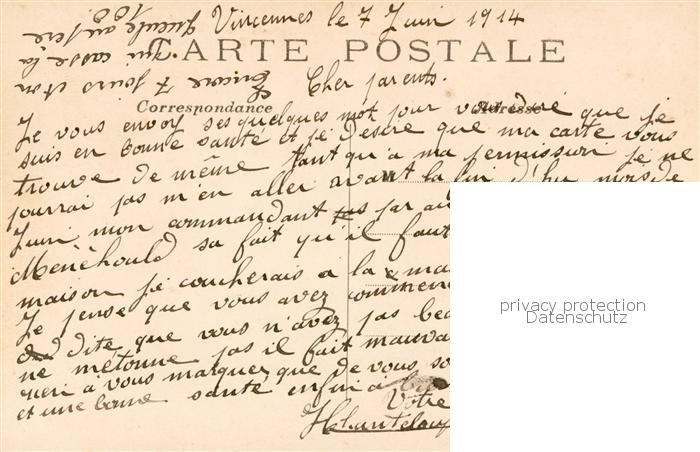 Vincennes le 7 Juin 1914
CARTE POSTALE
Encore 7 jours et on
qui casse la
gueule au père
Cher parents.
Correspondance
Adresse
Je vous envoy ses quelques mot pour vous dire que je
suis en bonne santé et je désire que ma carte vous
trouve de même tant qu'a ma permission je ne
pourrai pas m'en aller avant la fin d'hu mois de
Juin mon commandant pas par
Menéhould sa fait qu'il faut
maison je coucherais a la ma
Je pense que vous avez commenc
dite que vous n'avez pas bea
ne m'etonne pas il fait mauva
rien à vous marquer que de vous so
et une bonne santé enfin a
Votre
HChanteloup
privacy protection
Datenschutz